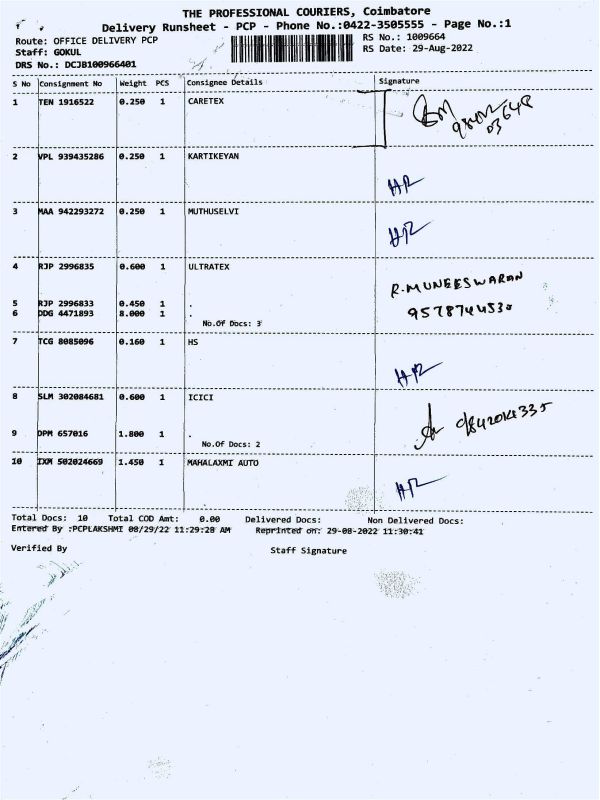 THE PROFESSIONAL COURIERS, Coimbatore
Delivery Runsheet - PCP - Phone No.:0422-3505555 - Page No.:1
Route: OFFICE DELIVERY PCP
RS No.: 1009664
Staff: GOKUL
RS Date: 29-Aug-2022
DRS No.: DCJB100966401
S No Consignment No Weight PCS Consignee Details Signature
1 TEN 1916522 0.250 1 CARETEX
2 VPL 939435286 0.250 1 KARTIKEYAN
3 MAA 942293272 0.250 1 MUTHUSELVI
4 RJP 2996835 0.600 1 ULTRATEX
R.MUNEESWARAN
5 RJP 2996833 0.450 1 .
6 DDG 4471893 8.000 1 .
No.Of Docs: 3
7 TCG 8085096 0.160 1 HS
8 SLM 302084681 0.600 1 ICICI
9 DPM 657016 1.800 1 .
No.Of Docs: 2
10 IXM 502024669 1.450 1 MAHALAXMI AUTO
Total Docs: 10 Total COD Amt: 0.00 Delivered Docs: Non Delivered Docs:
Entered By :PCPLAKSHMI 08/29/22 11:29:28 AM Reprinted on: 29-08-2022 11:30:41
Verified By Staff Signature